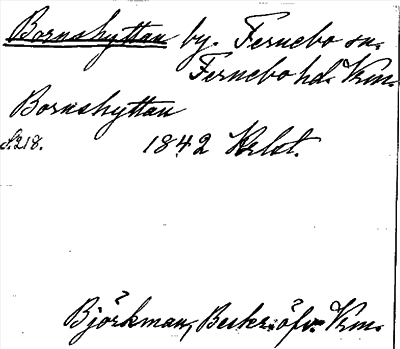 Bornshyttan by. Fernebo sn.
Fernebo hd. Vrm.
Bornshyttan
S. 218. 1842 Krbt.
Björkman, Beskr. öfv. Vrm.